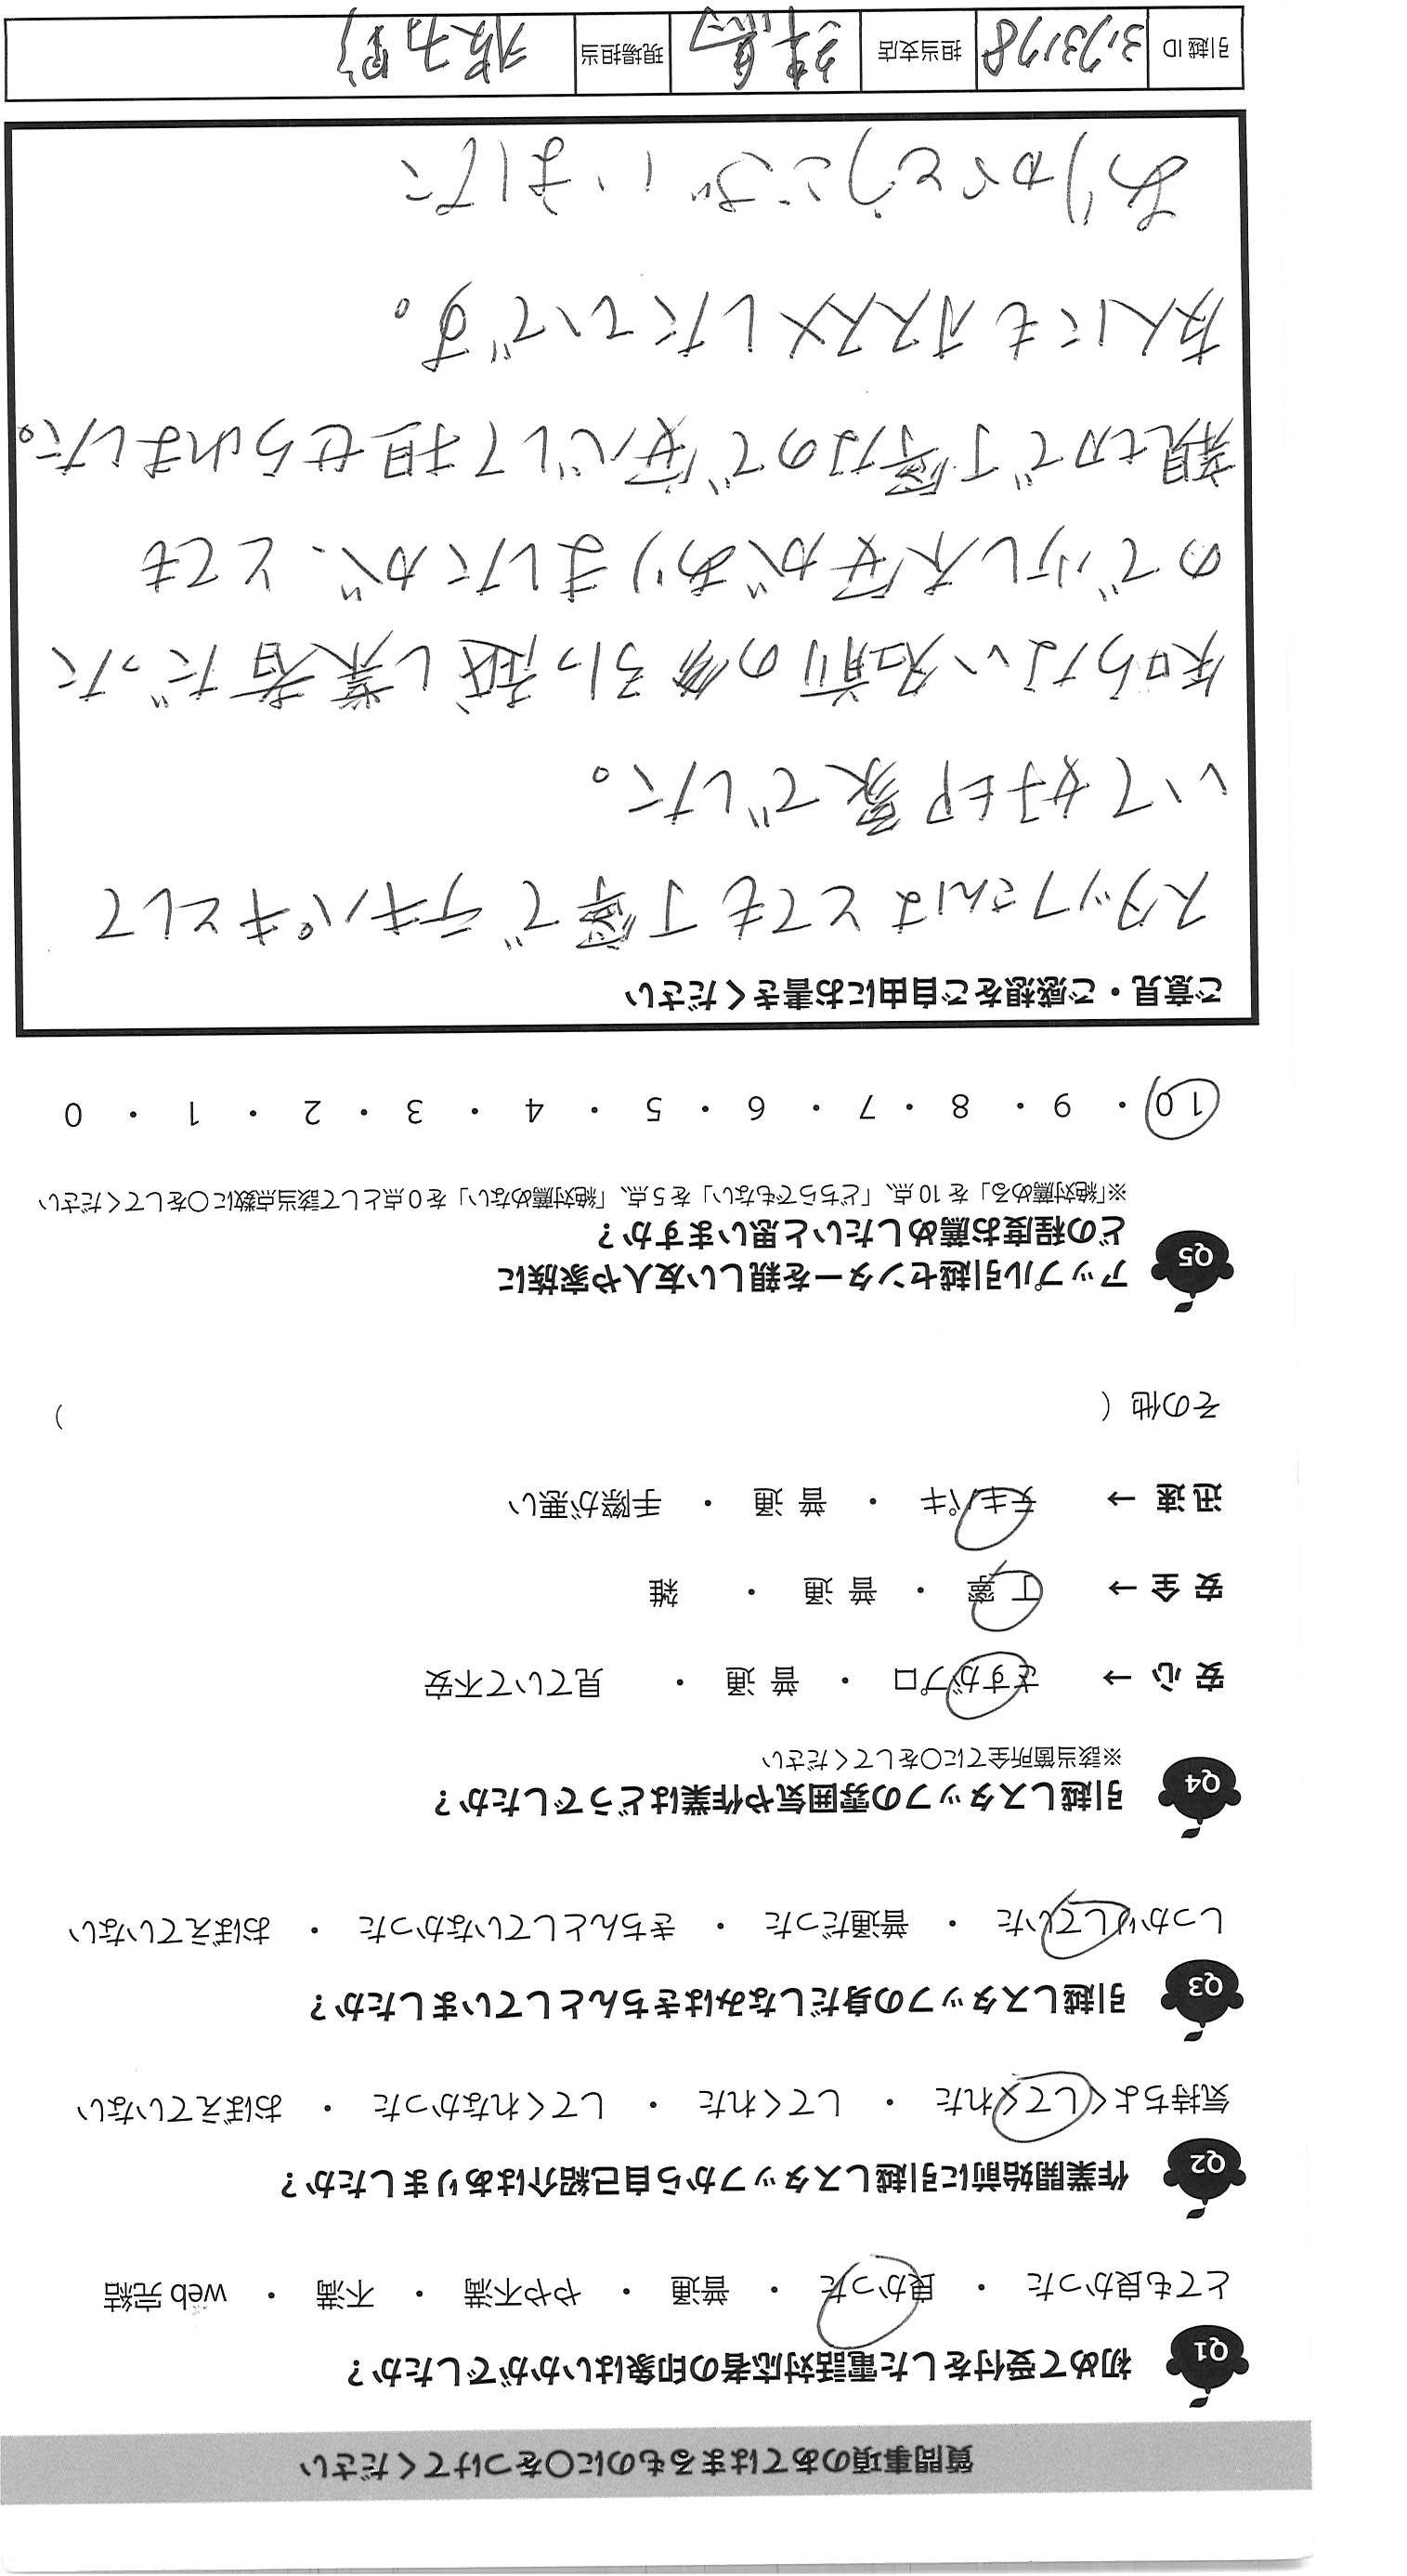 質問事項のあてはまるものに〇をつけてください
Q1 初めて受付をした電話対応者の印象はいかがでしたか？
とても良かった ・ 良かった ・ 普通 ・ やや不満 ・ 不満 ・ web 完結
Q2 作業開始前に引越しスタッフから自己紹介はありましたか？
気持ちよくしてくれた ・ してくれた ・ してくれなかった ・ おぼえていない
Q3 引越しスタッフの身だしなみはきちんとしていましたか？
しっかりしていた ・ 普通だった ・ きちんとしていなかった ・ おぼえていない
Q4 引越しスタッフの雰囲気や作業はどうでしたか？
※該当箇所全てに〇をしてください
安 心 → さすがプロ ・ 普 通 ・ 見ていて不安
安 全 → 丁 寧 ・ 普 通 ・ 雑
迅 速 → テキパキ ・ 普 通 ・ 手際が悪い
その他（ ）
Q5 アップル引越センターを親しい友人や家族に
どの程度お薦めしたいと思いますか？
※「絶対薦める」を 10 点、「どちらでもない」を 5 点、「絶対薦めない」を 0 点として該当点数に〇をしてください
10 ・ 9 ・ 8 ・ 7 ・ 6 ・ 5 ・ 4 ・ 3 ・ 2 ・ 1 ・ 0
ご意見・ご感想をご自由にお書きください
スタッフさんはとても丁寧でテキパキとして
いて好印象でした。
知らない名前の引っ越し業者だった
ので少し不安がありましたが、とても
親切で丁寧なので安心して担せられました。
友人にもオススメしたいです。
ありがとうございました
引越 ID 3173178 担当支店 練馬 現場担当